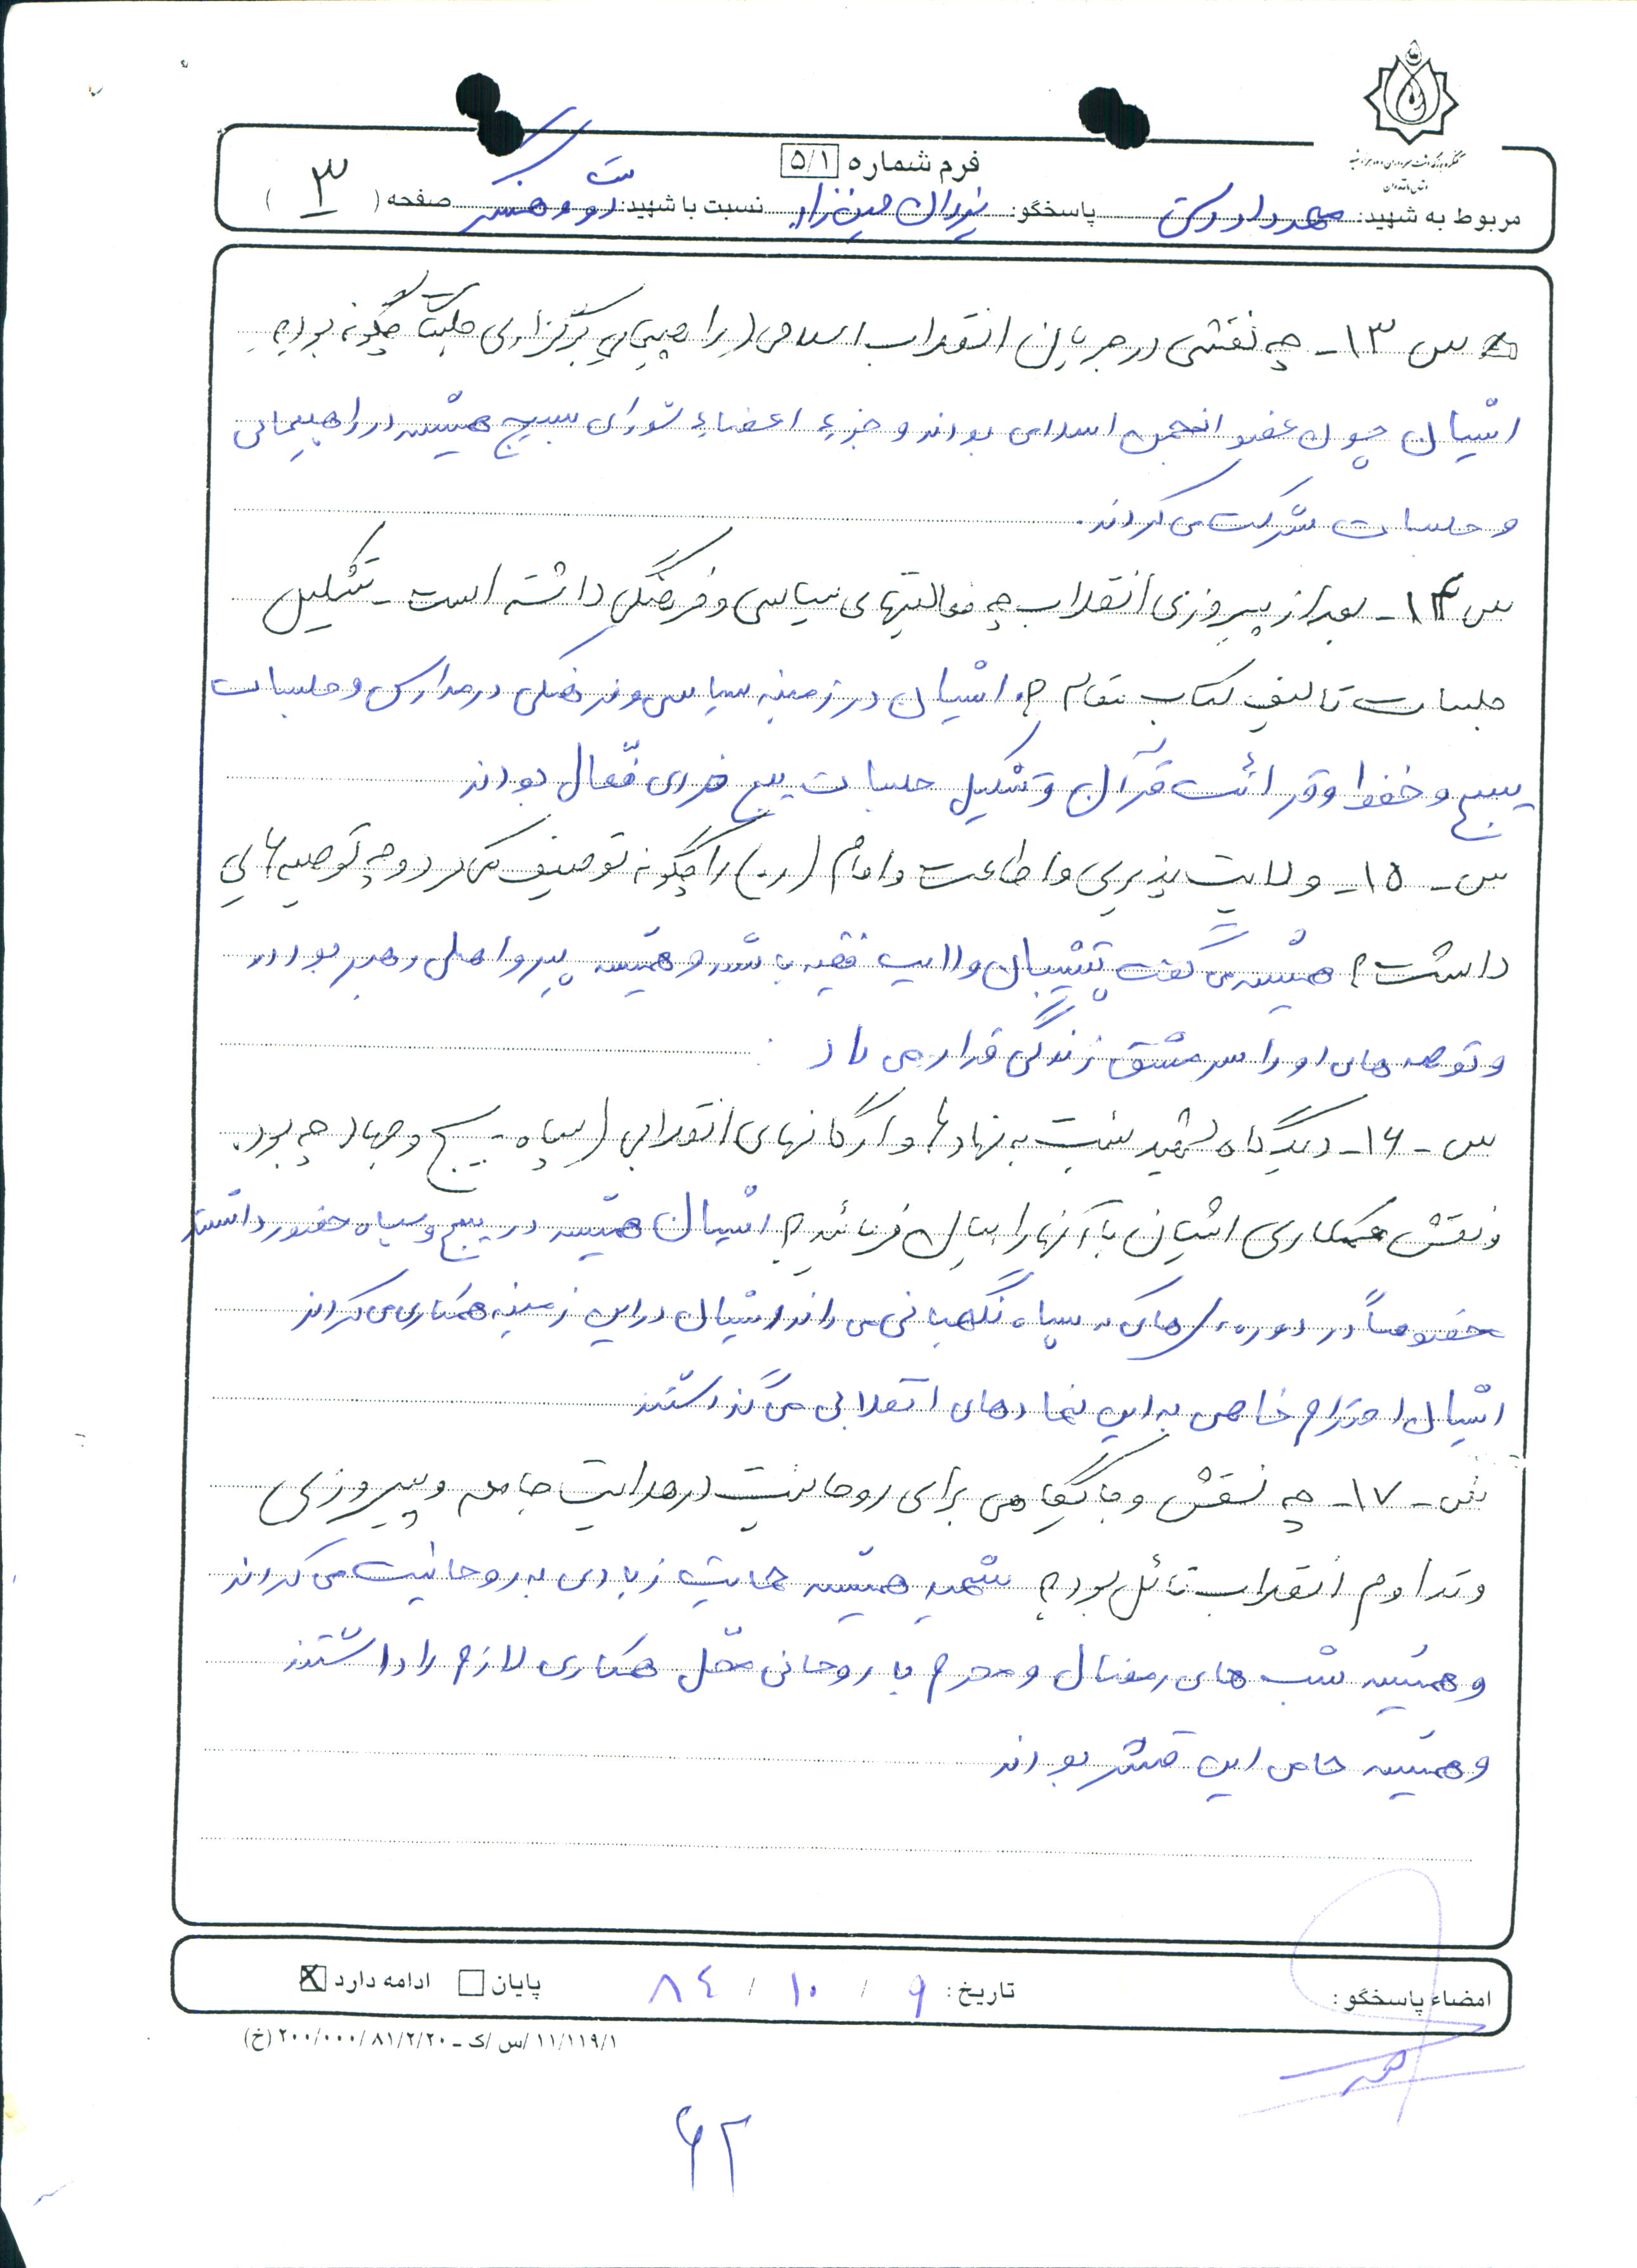 فرم شماره ۵/۱
مربوط به شهید: پاسخگو: نسبت با شهید: صفحه ( ۳ )
س ۱۳- چه نقشی در جریان انقلاب اسلامی (راهپیمایی برگزاری جلسات چگونه بود؟
ایشان چون عضو انجمن اسلامی بودند و جزء اعضاء شورای بسیج همیشه در راهپیمائی
و جلسات شرکت می کردند.
س ۱۴- بعد از پیروزی انقلاب چه فعالیتهای سیاسی و فرهنگی داشته است - تشکیل
جلسات تالیف کتاب مقاله؟ ایشان در زمینه سیاسی و فرهنگی در مدارس و جلسات
بسیج و حفظ و قرائت قرآن و تشکیل جلسات بسیج فردی فعّال بودند
س- ۱۵- ولایت پذیری و اطاعت و امام (ره) را چگونه توصیف می کرد و چه توصیه هایی
داشت؟ همیشه می گفت پشتیبان ولایت فقیه باشد و همیشه پیرو رهبر بودند
و توصیه های او را سرمشق زندگی قرار می داد
س- ۱۶- دیدگاه شهید نسبت به نهادها و ارگانهای انقلابی (سپاه - بسیج و جهاد چه بود.
و نقش همکاری ایشان با آنها را بیان فرمائید؟ ایشان همیشه در بسیج و سپاه حضور داشتند
خصوصاً در دوره هایی که سپاه نگهبانی می دادند ایشان در این زمینه همکاری می کردند
ایشان احترام خاصی به این نهادهای انقلابی می گذاشتند
س- ۱۷- چه نقش و جایگاهی برای روحانیت در هدایت جامعه و پیروزی
و تداوم انقلاب قائل بود؟ شهید همیشه حمایت زیادی به روحانیت می کردند
و همیشه شب های رمضان و محرم با روحانی محّل همکاری لازم را داشتند
و همیشه حامی این قشر بودند
امضاء پاسخگو: تاریخ: ۹ / ۱۰ / ۸۴ پایان ادامه دارد
۱۱/۱۱۹/۱ /س /ک - ۲۰۰/۰۰۰/۸۱/۲/۲۰ (خ)
۶۲